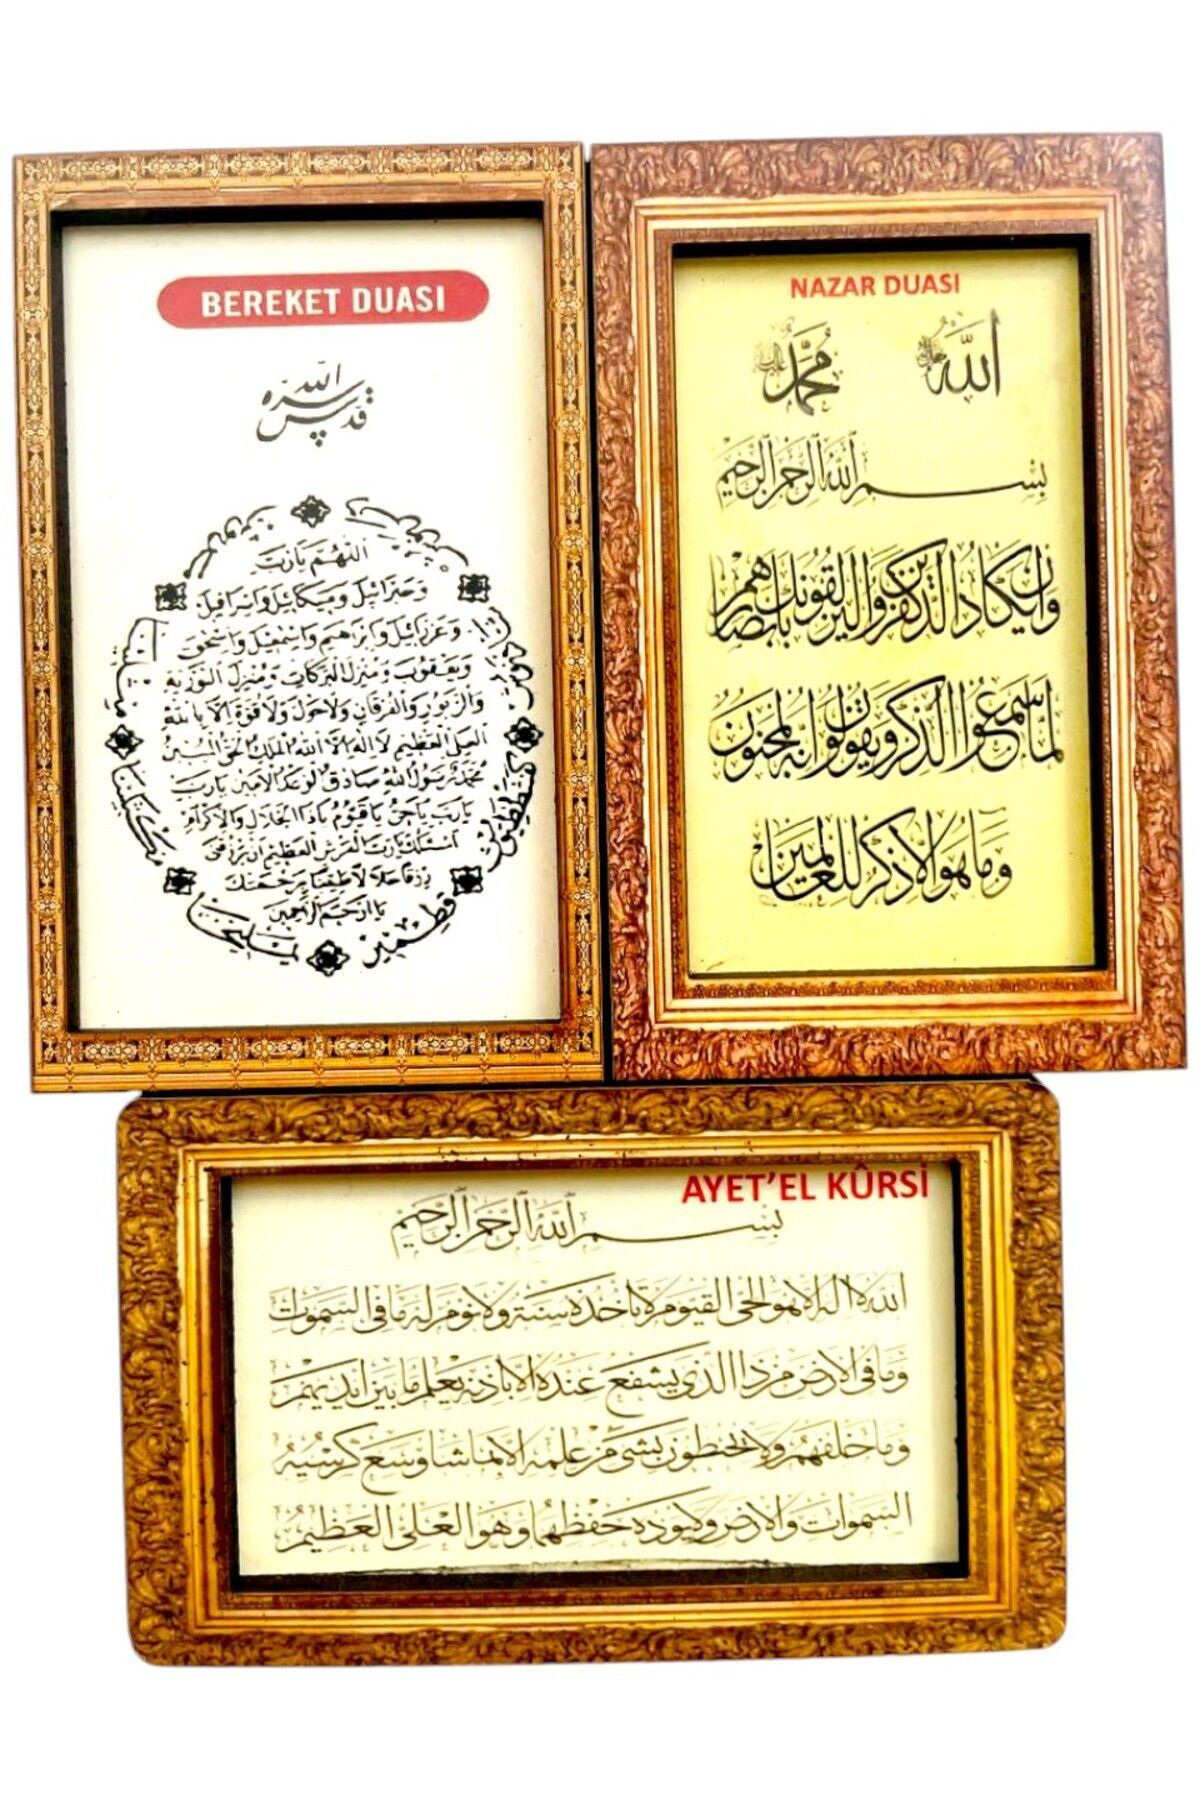 BEREKET DUASI
قدس الله سره
اللهم يا رب
وجبرائيل وميكائيل واسرافيل
وعزرائيل وابراهيم واسمعيل واسحق
ويعقوب ومنزل البركات ومنزل التورية
والزبور والفرقان ولا حول ولا قوة الا بالله
العلي العظيم لا اله الا الله الملك الحق المبين
محمد رسول الله صادق الوعد الامين يا رب
يا رب يا حي يا قيوم يا ذا الجلال والاكرام
اسئلك يا رب العرش العظيم ان ترزقني
رزقا حلالا طيبا برحمتك
يا ارحم الراحمين
يمليخا
مكسلينا
مثلينا
كفشططيوش
قطمير
NAZAR DUASI
الله
محمد
بسم الله الرحمن الرحيم
وان يكاد الذين كفروا ليزلقونك بابصارهم
لما سمعوا الذكر ويقولون انه لمجنون
وما هو الا ذكر للعالمين
AYET'EL KÛRSİ
بسم الله الرحمن الرحيم
الله لا اله الا هو الحي القيوم لا تاخذه سنة ولا نوم له ما في السموات
وما في الارض من ذا الذي يشفع عنده الا باذنه يعلم ما بين ايديهم
وما خلفهم ولا يحيطون بشيء من علمه الا بما شاء وسع كرسيه
السموات والارض ولا يوده حفظهما وهو العلي العظيم